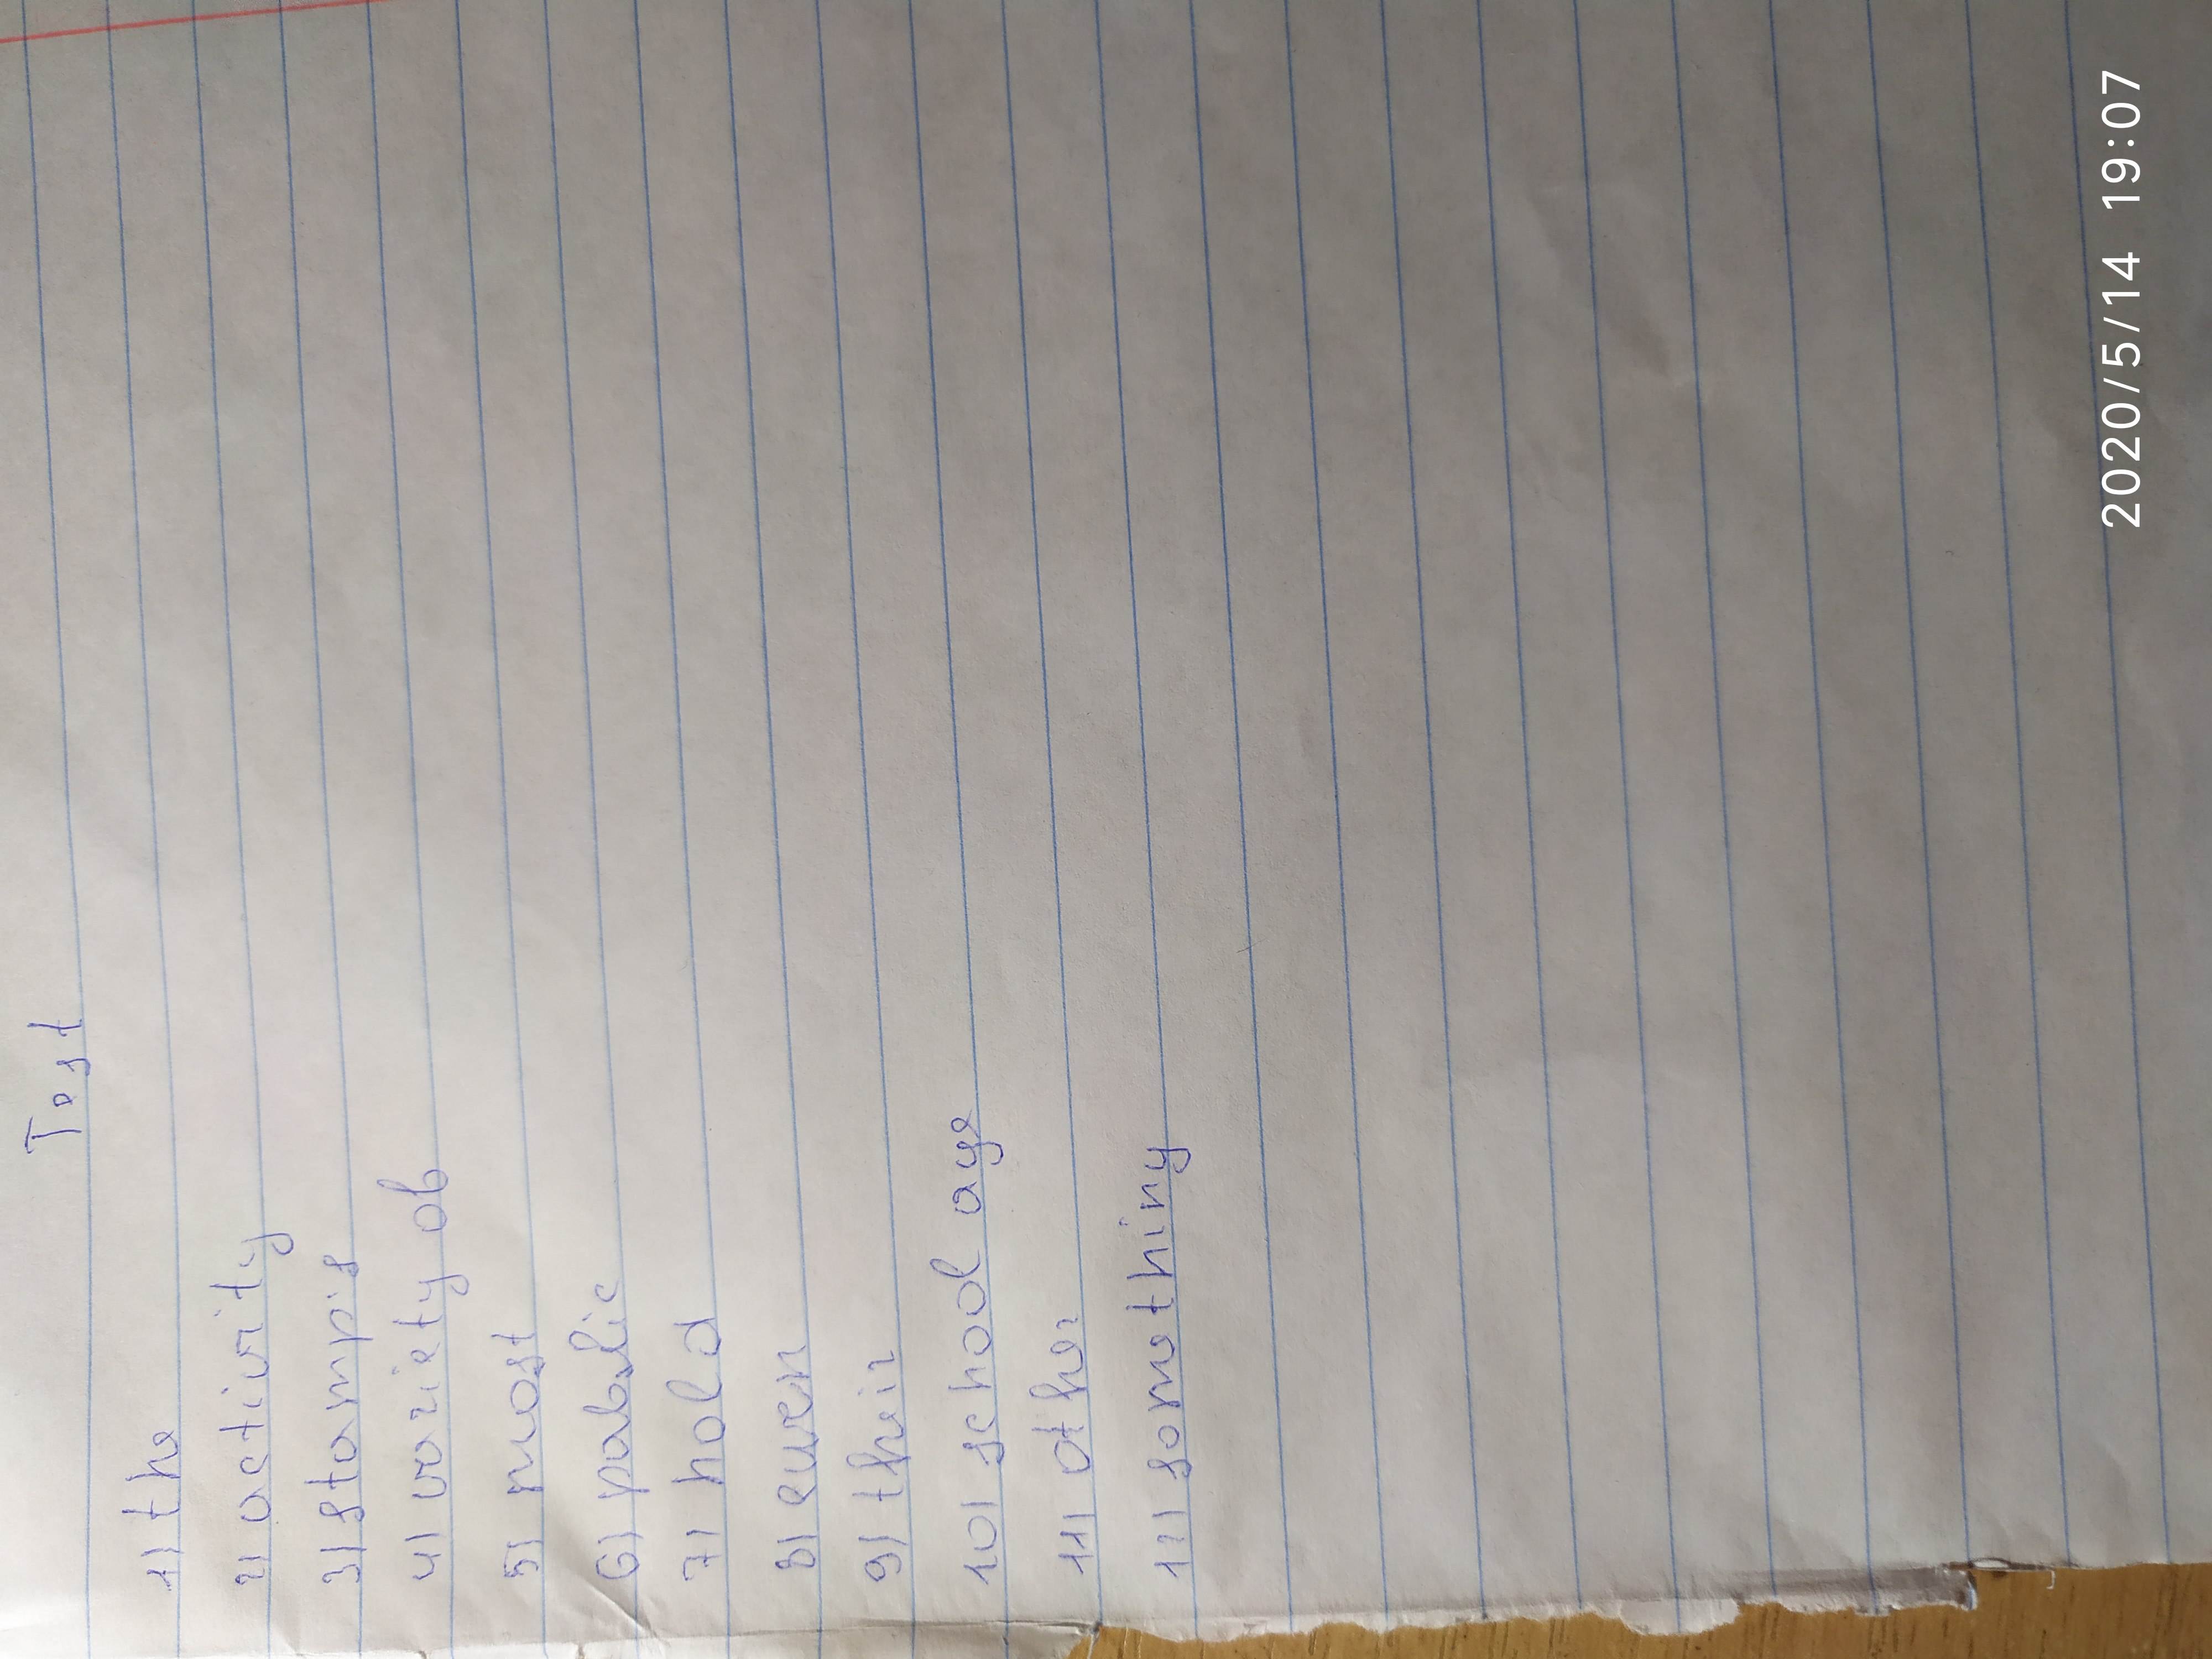 Test
1) the
2) activity
3) stamp.s
4) variety of
5) most
6) pablic
7) hold
8) even
9) their
10) school age
11) other
12) something
2020/5/14 19:07